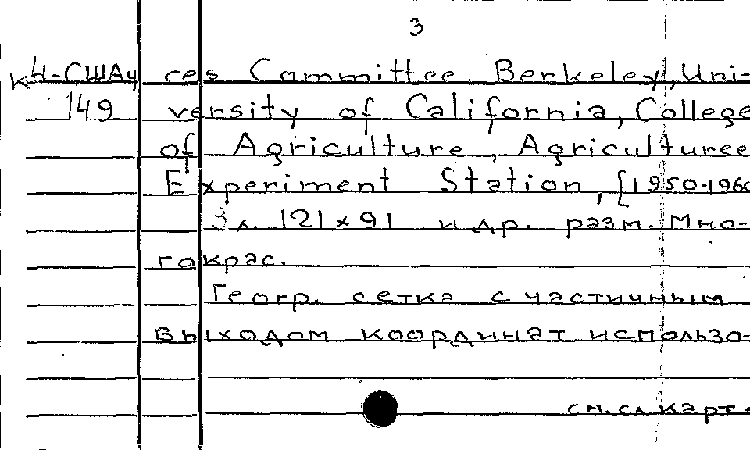 3
К4-США4 ces Committee Berkeley, Uni-
149 versity of California, College
of Agriculture, Agricultures
Experiment Station, [1950-196
3 л. 121 х 91 и др. разм. Мно-
гокрас.
Геогр. сетка с частичным
выходом координат использо-
см. сл. карт